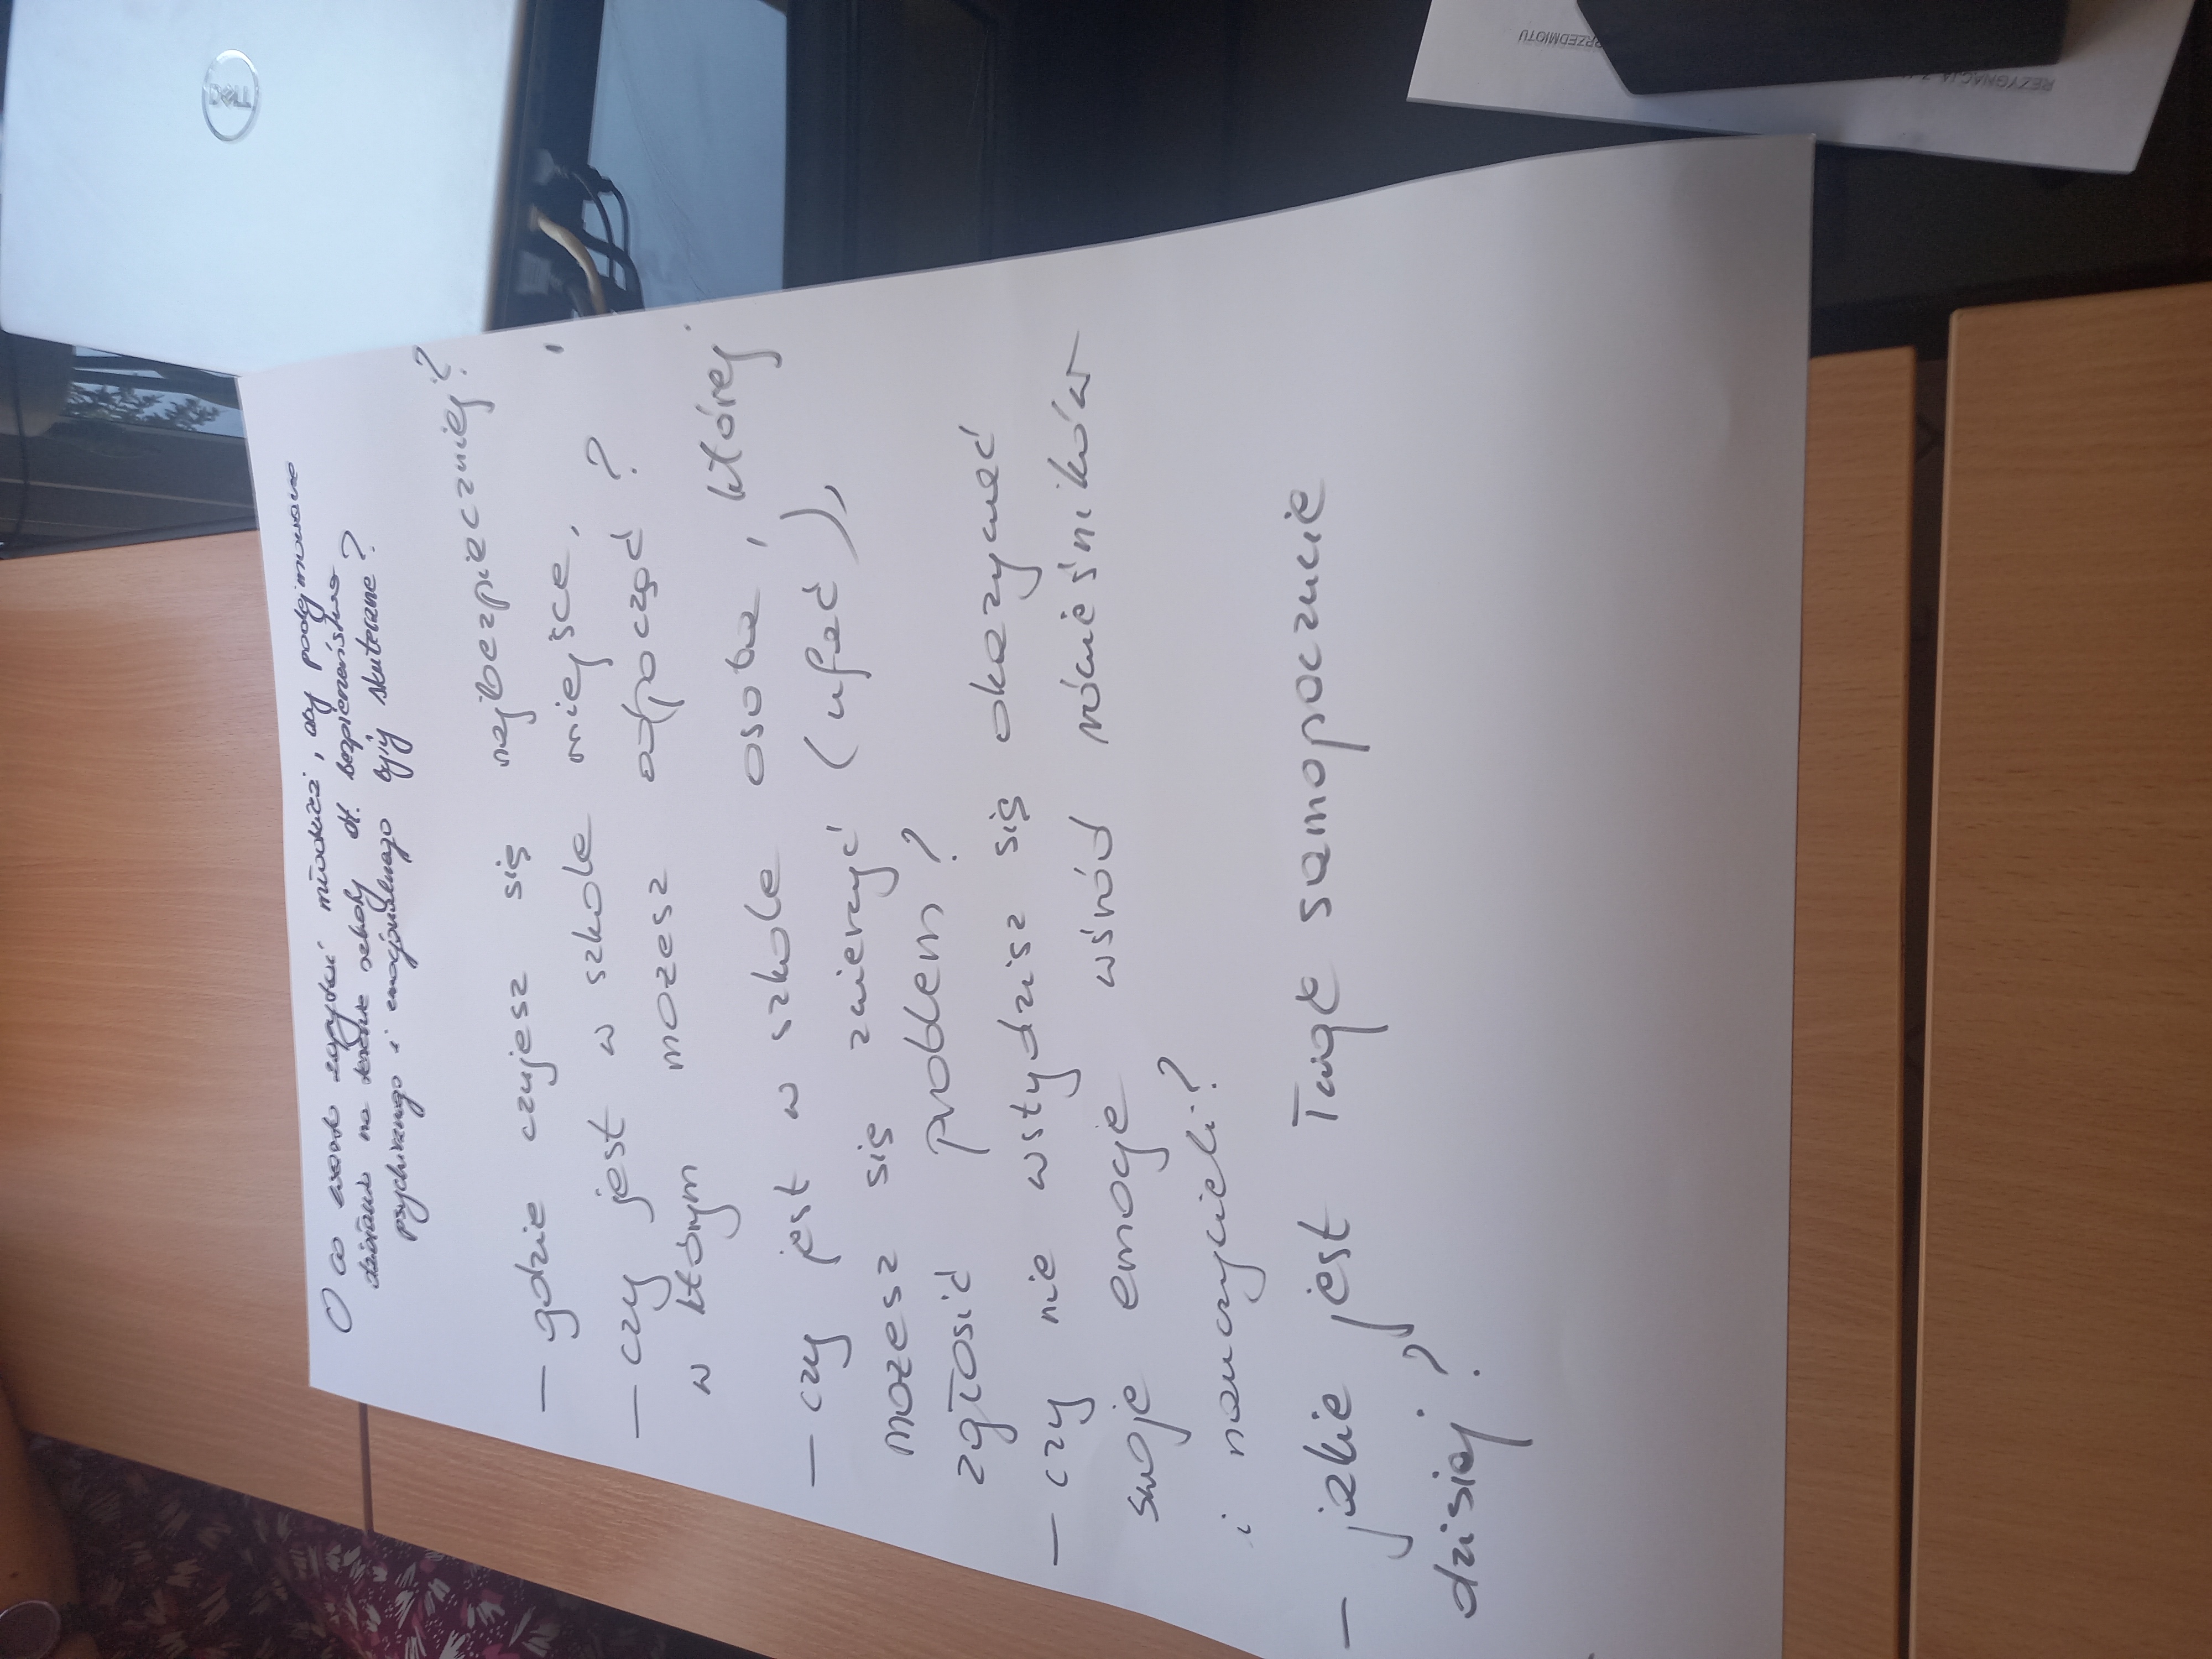 O co warto zapytać młodzież, aby podejmowane
działania na terenie szkoły dt. bezpieczeństwa
psychicznego i emocjonalnego były skuteczne?
— gdzie czujesz się najbezpieczniej?
— czy jest w szkole miejsce,
w którym możesz odpocząć?
— czy jest w szkole osoba, której
możesz się zwierzyć (ufać),
zgłosić problem?
— czy nie wstydzisz się okazywać
swoje emocje wśród rówieśników
i nauczycieli?
— jakie jest Twoje samopoczucie
dzisiaj?
DELL
REZYGNACJA Z
PRZEDMIOTU